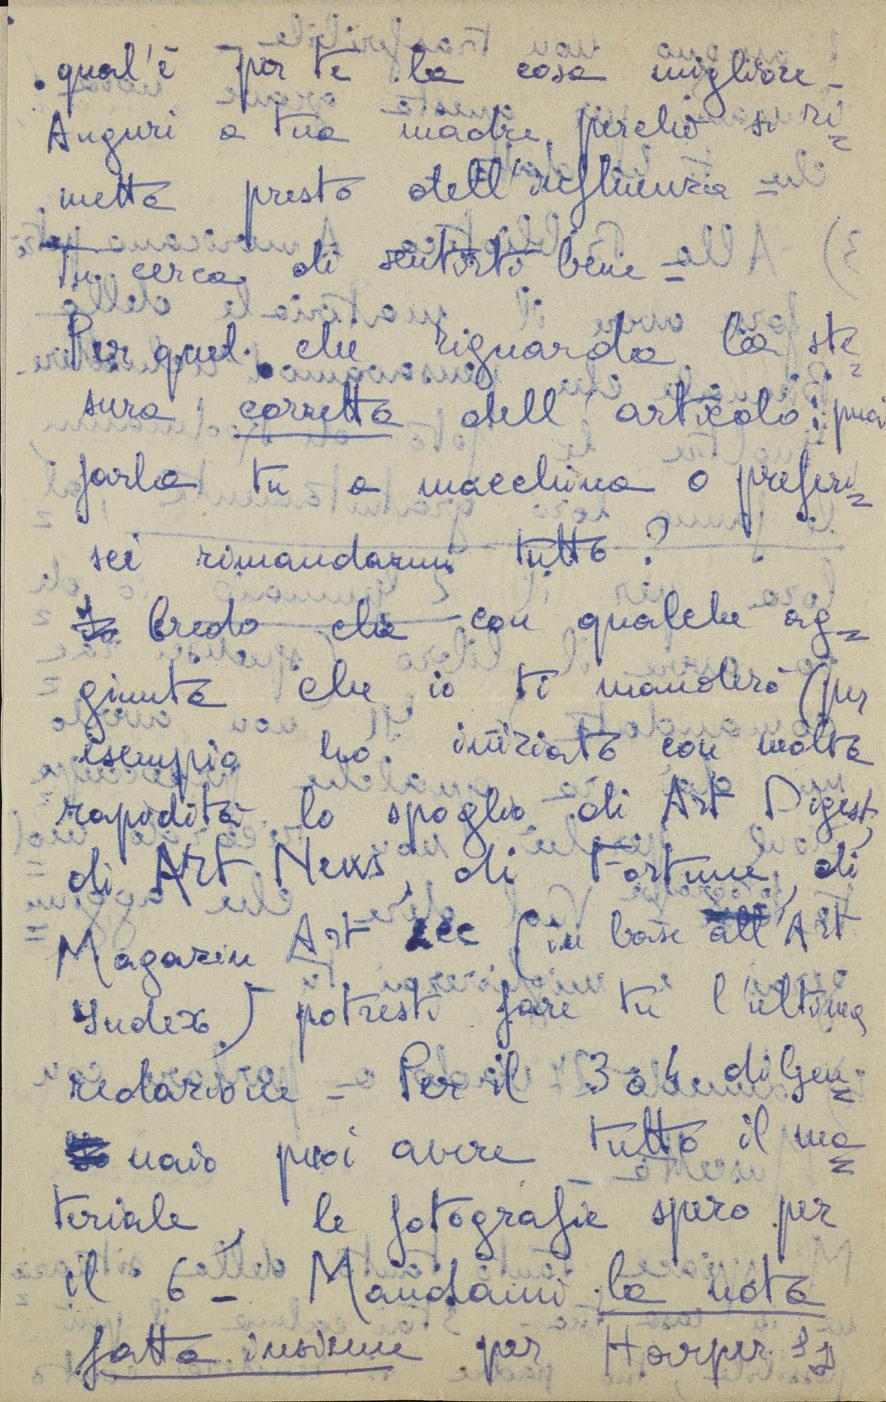 qual'è per te la cosa migliore –
Auguri a tua madre perchè si ri=
metta presto dell'influenza =
Tu cerca di sentirti bene =
Per quel che riguarda la ste=
sura corretta dell'articolo: puoi
farla tu a macchina o preferi=
sci rimandarmi tutto?
Credo che con qualche ag=
giunta che io ti manderò (per
esempio ho iniziato con molta
rapidità lo spoglio di Art Digest,
di Art News, di Fortune, di
Magazin Art ecc (in base all'Art
Index) potresti fare tu l'ultima
redazione – Per il 3 o 4 di Gen=
naio puoi avere tutto il ma=
teriale, le fotografie spero per
il 6 – Mandami la nota
fatta insieme per Harper's